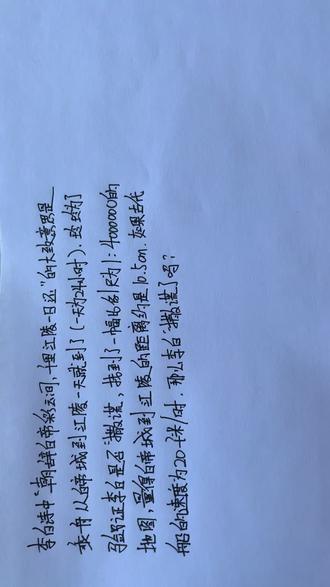 李白诗中“朝辞白帝彩云间，千里江陵一日还”的大致意思是
乘舟从白帝城到江陵一天就到了(一天为24小时)．悠悠为了
验证李白是否“撒谎，找到了一幅比例尺为1:4000000的
地图，量得白帝城到江陵的距离约是10.5cm．如果古代
船的速度为20千米/时．那么李白“撒谎”了吗？